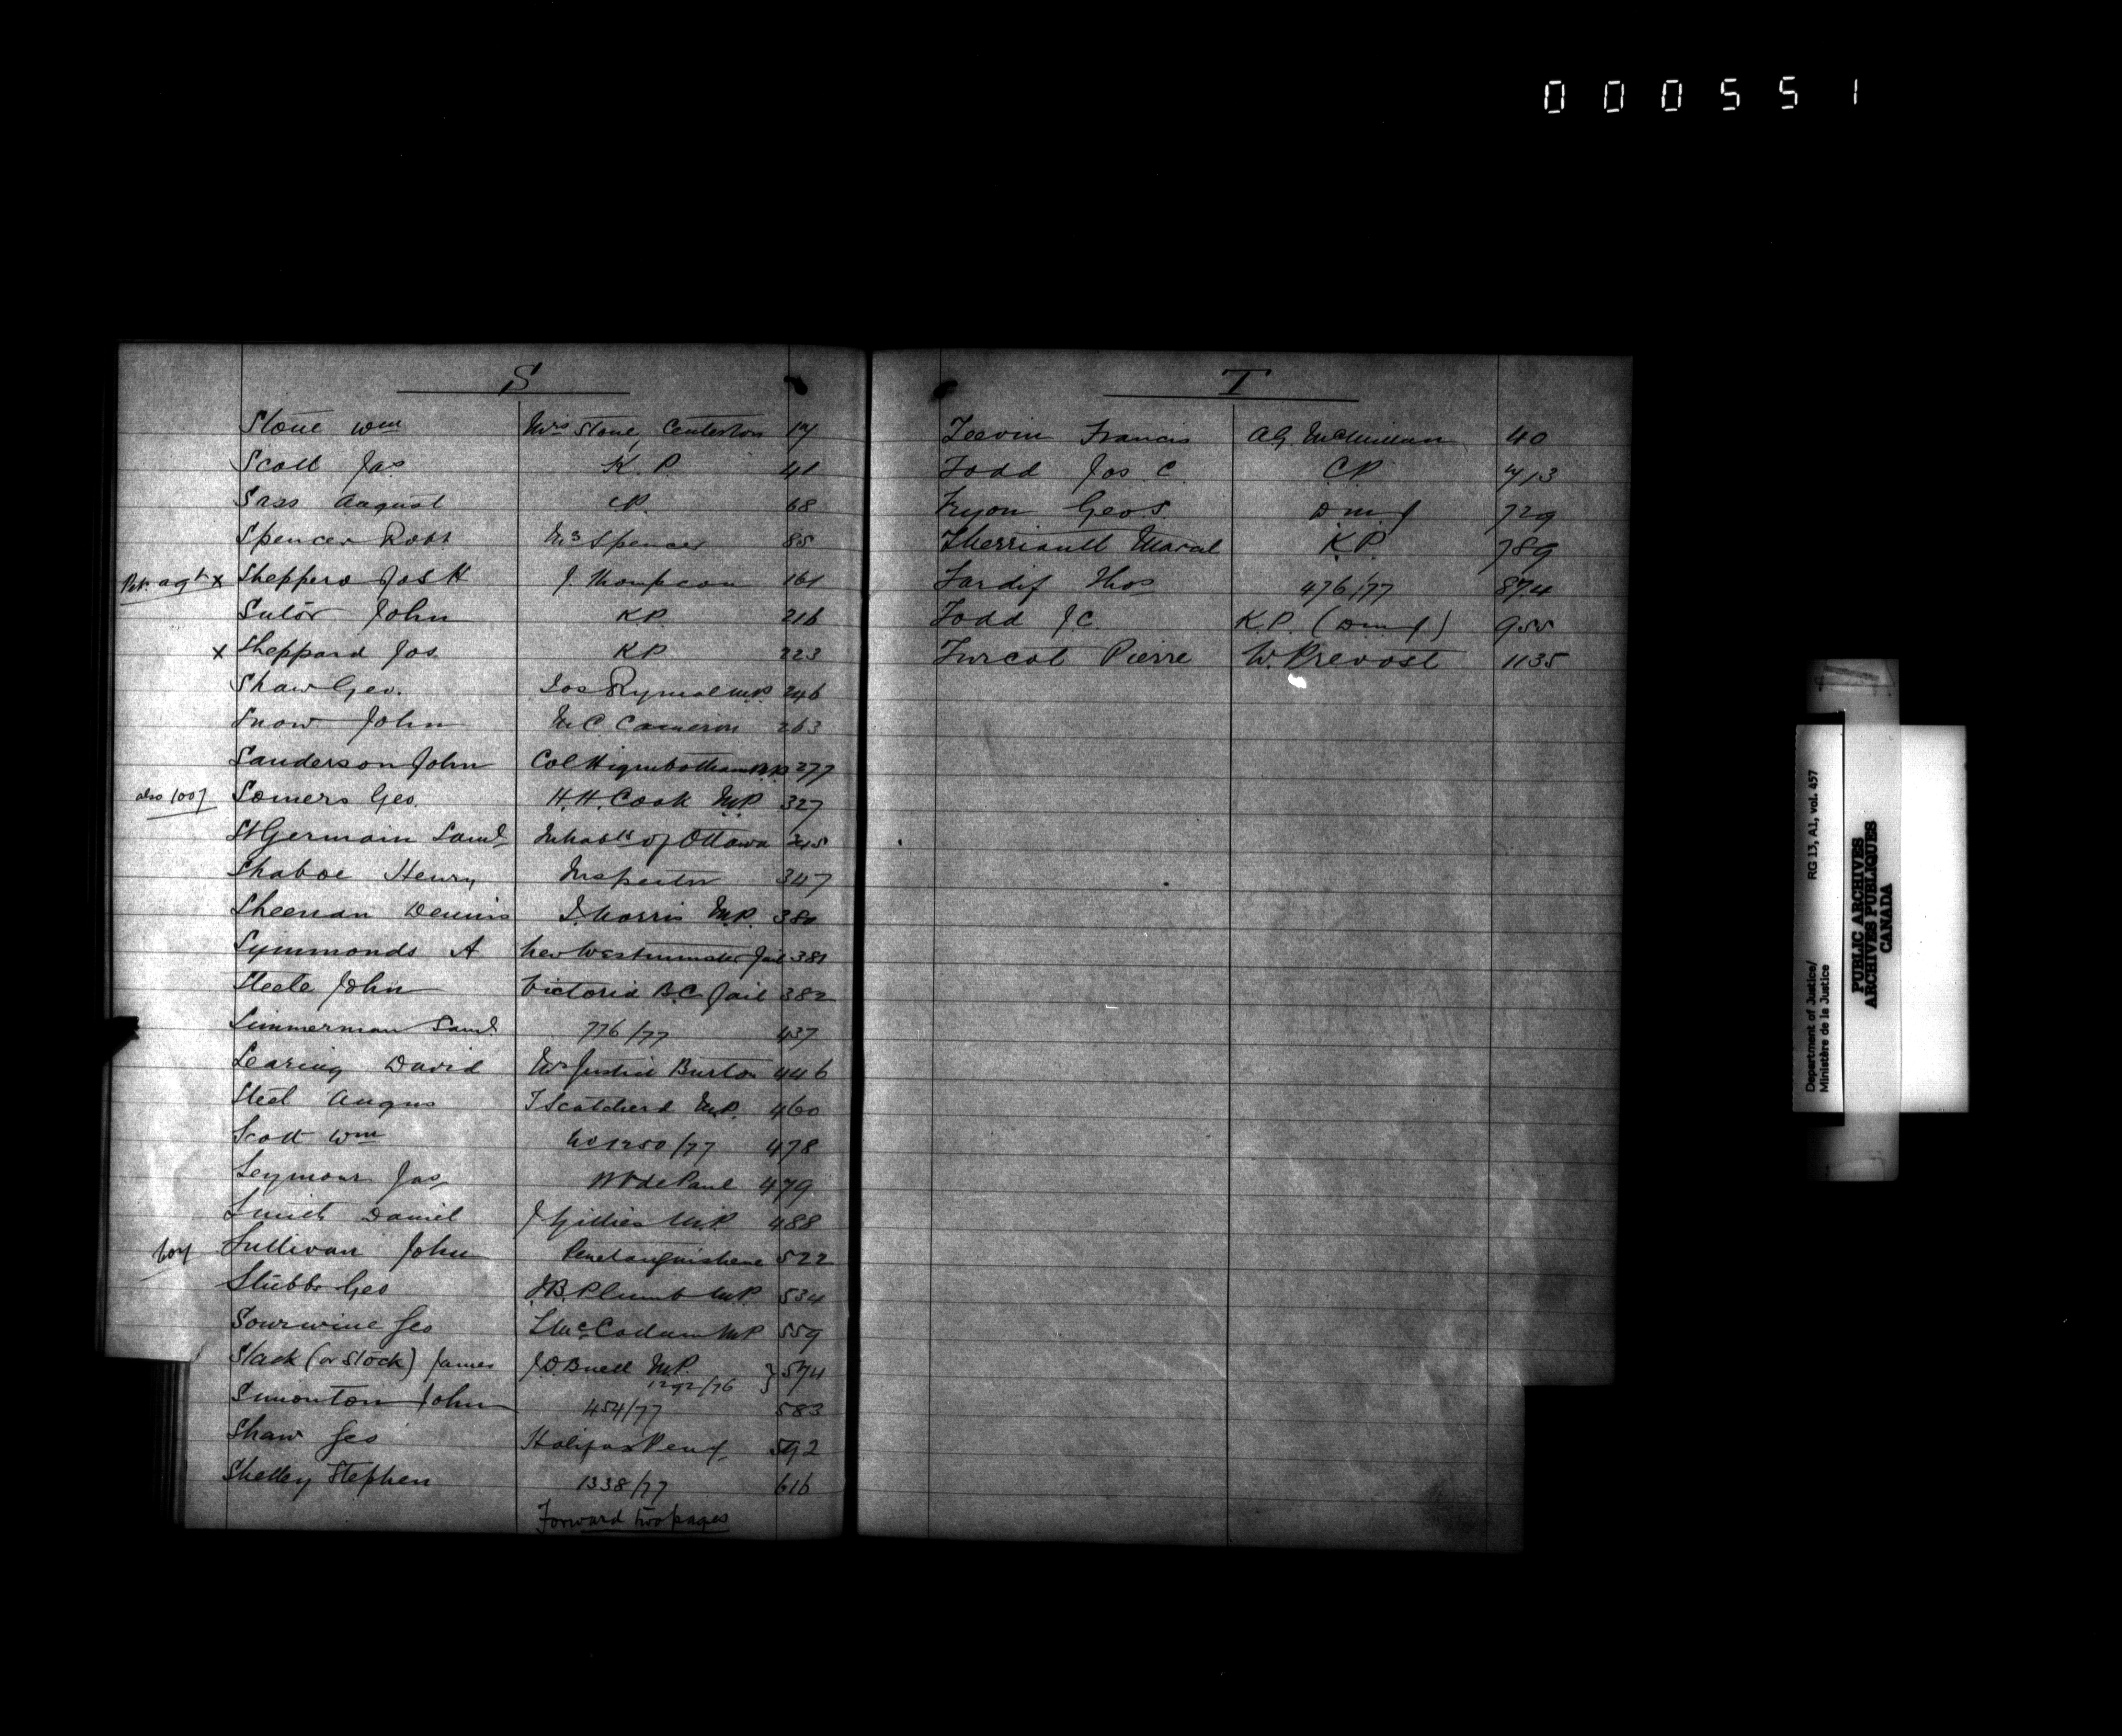 000551
S
Stone Wm Mrs Stone, Centerton 14
Scott Jas. K. P. 41
Sass August CP. 68
Spencer Robt Mrs Spencer 85
x Sheppard Jos H J. Thompson 161
Sutor John KP. 216
x Sheppard Jos. KP 223
Shaw Geo. Jos Rymal M.P. 246
Snow John M.C. Cameron 263
Sanderson John Col Higinbotham M.P. 277
also 1007 Somers Geo. H.H. Cook M.P. 327
St Germain Saml Inhabts of Ottawa
Shaboe Henry Inspector 347
Sheenan Dennis Morris M.P. 380
Symmonds A New Westminster Jail 381
Steele John Victoria B.C. Jail 382
Simmerman Saml. 776/77 437
Searing David Mr Justice Burton 446
Steel Angus T Scatcherd M.P. 460
Scott Wm No 1250/77 478
Seymour Jas V de Paul 479
Smith Daniel J Gillies M.P. 488
604 Sullivan John Penetanguishene 522
Stubbs Geo J.B. Plumb M.P. 534
Sourwine Geo L McCallum MP 559
Slack (or Stock) James J.D. Buell M.P. 1292/76 } 574
Simonton John 454/77 583
Shaw Geo Halifax Peny 592
Shelley Stephen 1338/77 616
Forward two pages
T
Teevin Francis A.G. McMillan 40
Todd Jos C. C.P. 713
Tryon Geo S. D M J 729
Therriault Marcel K.P. 789
Tardif Thos 476/77 874
Todd J.C. K.P. (D M J) 955
Turcot Pierre W. Prevost 1135
Department of Justice/ RG 13, A1, vol. 457
Ministère de la Justice
PUBLIC ARCHIVES
ARCHIVES PUBLIQUES
CANADA